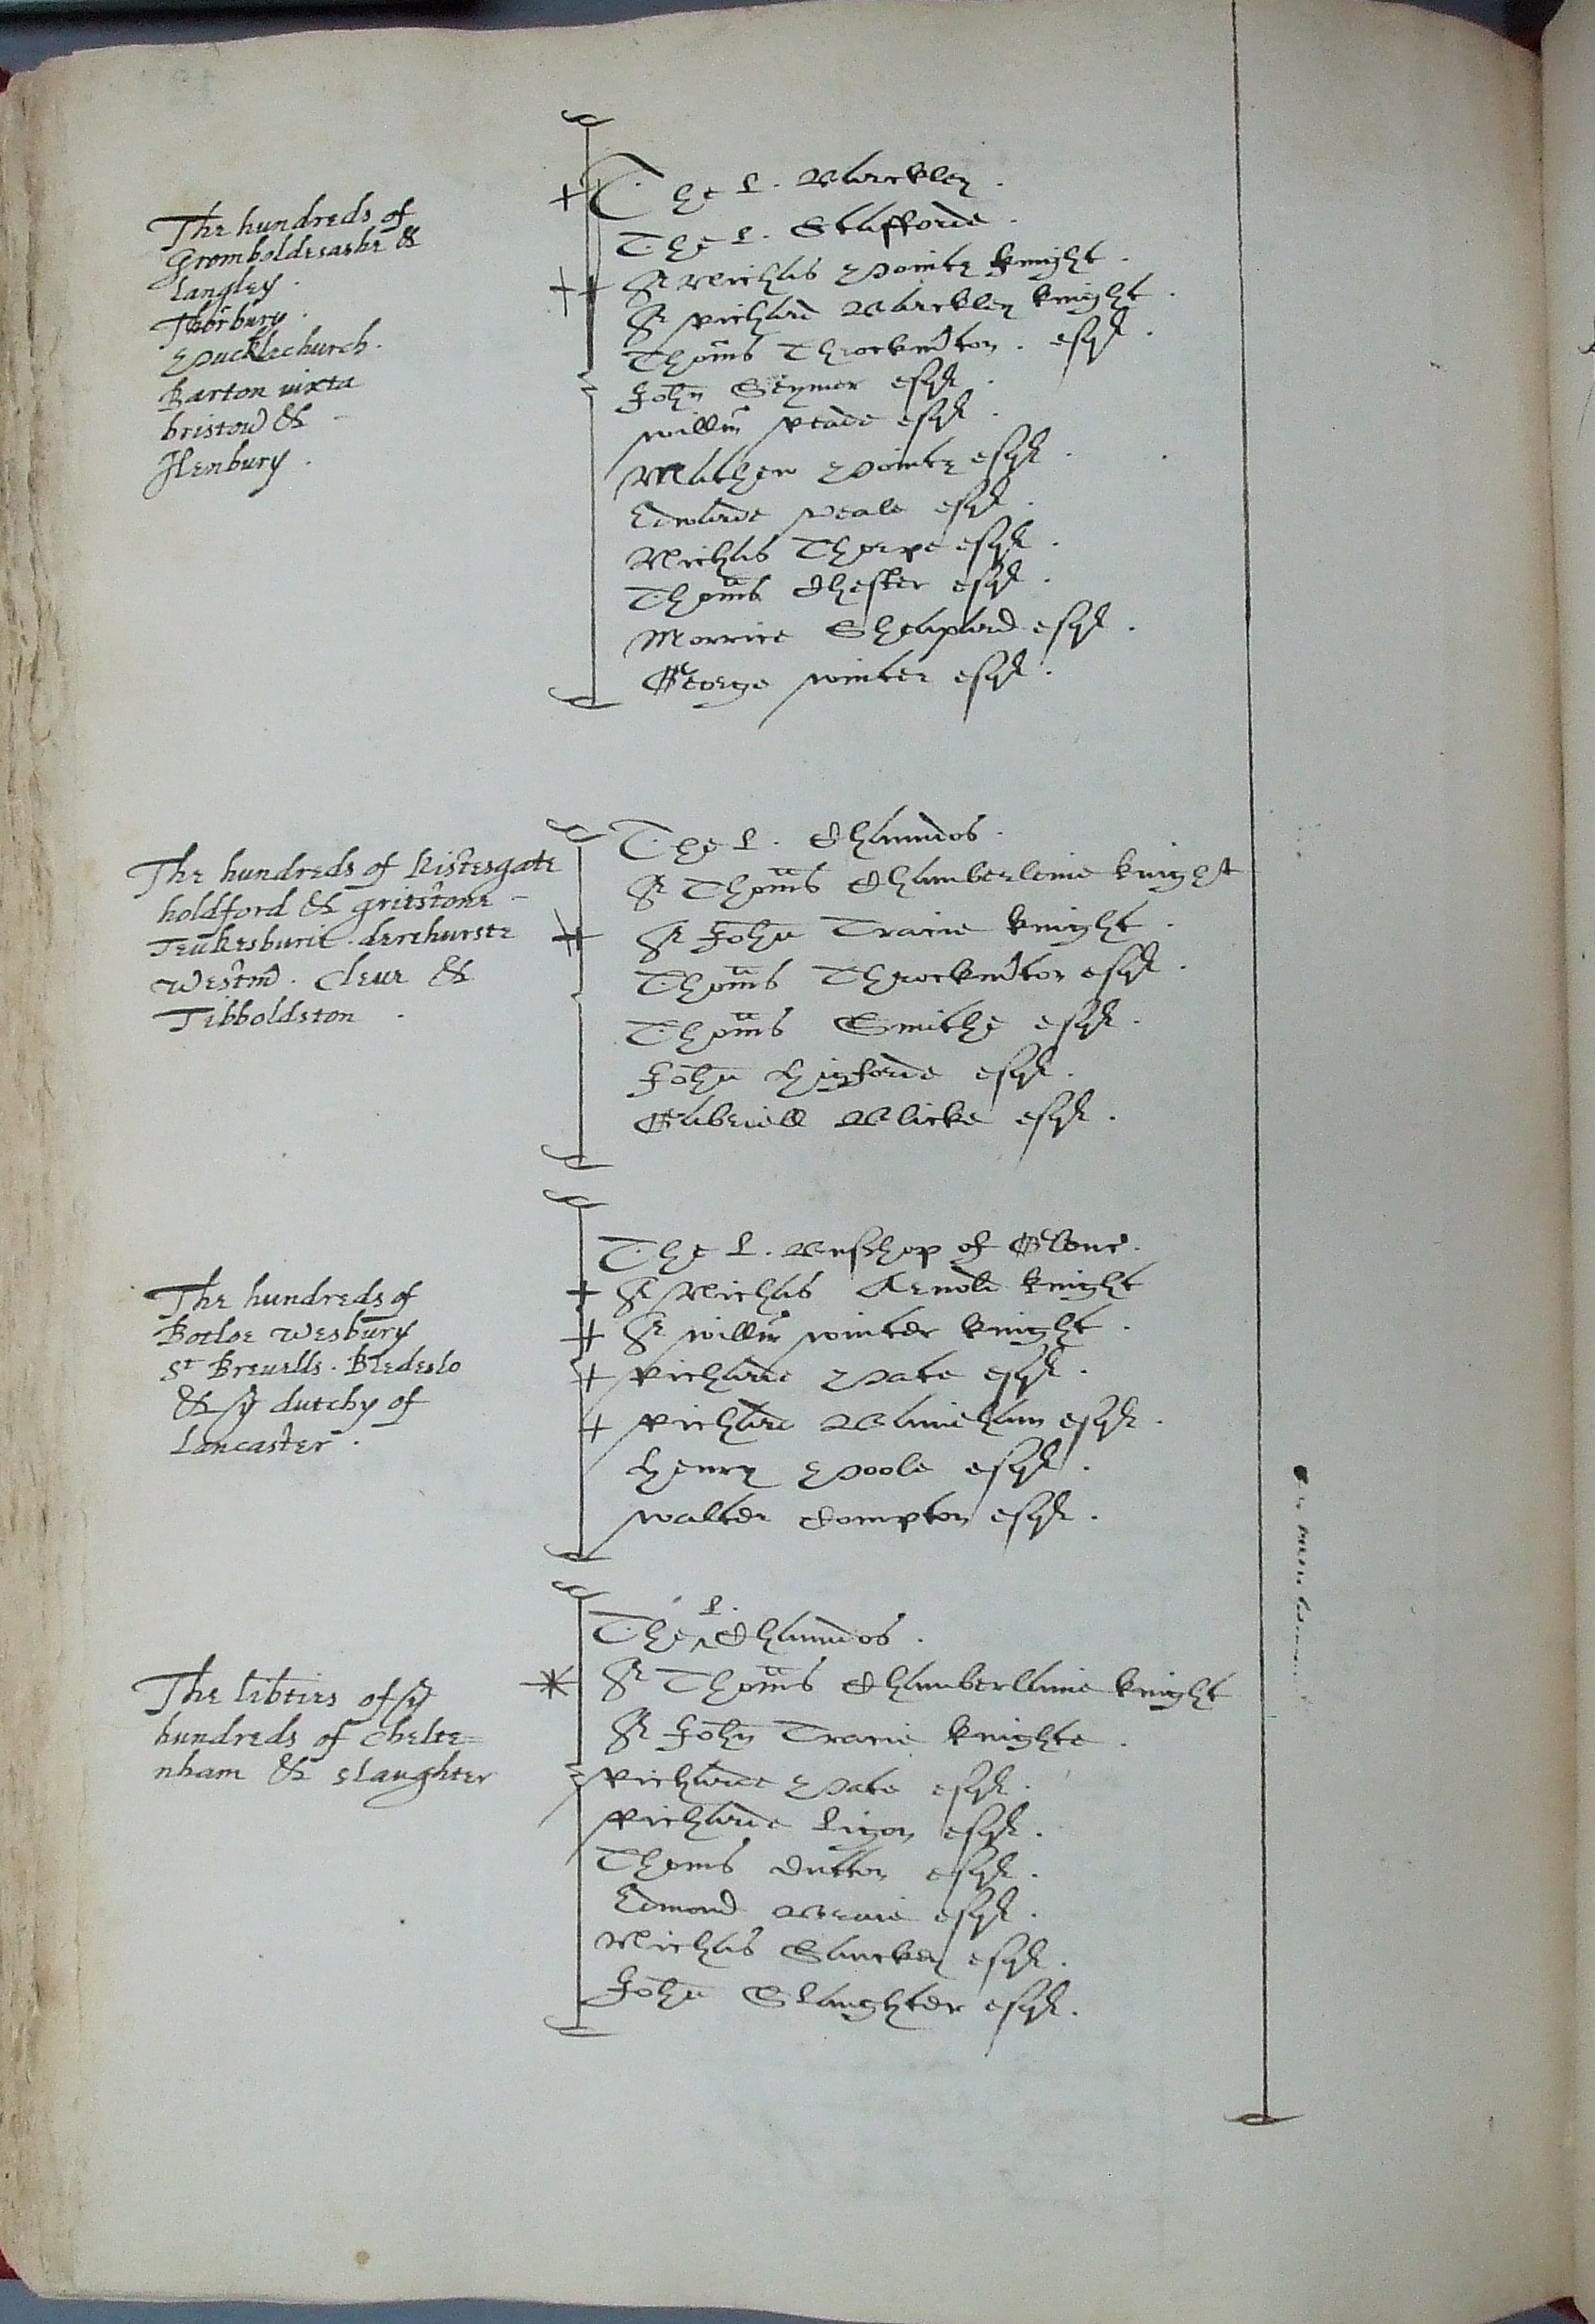 The hundreds of
Gromboldesashe &
Langley .
Thorbury .
Pucklechurch .
Barton iuxta
bristow &
Henbury .
The L. Barckley .
The L. Stafforde .
Sr Nichas Pointz knight .
Sr Richard Barckley knight .
Thoms Throckmton . esqr .
John Seymer esqr .
Willm Reade esqr .
Mathew Pointz esqr .
Edwarde Veale esqr .
Nichas Thorpe esqr .
Thoms Chester esqr .
Morrice Shepard esqr .
George Winter esqr .
The hundreds of Kistesgate
holdford & gritstone
Teukesburie . derehurste
Westm . Cleue &
Tibboldston .
The L . Chandos .
Sr Thoms Chamberleine knight
Sr John Tracie knight .
Thoms Throckmton esqr .
Thoms Smithe esqr .
John Higforde esqr .
Gabriell Blicke esqr .
The hundreds of
Botloe Wesbury
St Breuells . Bledeslo
& ye dutchy of
Lancaster .
The L . Busshop of Glouc .
Sr Nichas Arnold knight
Sr Willm Winter knight .
Richarde Pate esqr .
Richard Baineham esqr .
Henry Poole esqr .
Walter Compton esqr .
The libties of ye
hundreds of Chelte=
nham & slaughter
The L. Chandos .
Sr Thoms Chamberlaine knight
Sr John Tracie knighte .
Richarde Pate esqr .
Richarde Ligon esqr .
Thoms Dutton esqr .
Edmond Breuie esqr .
Nichas Sanckey esqr .
John Slaughter esqr .